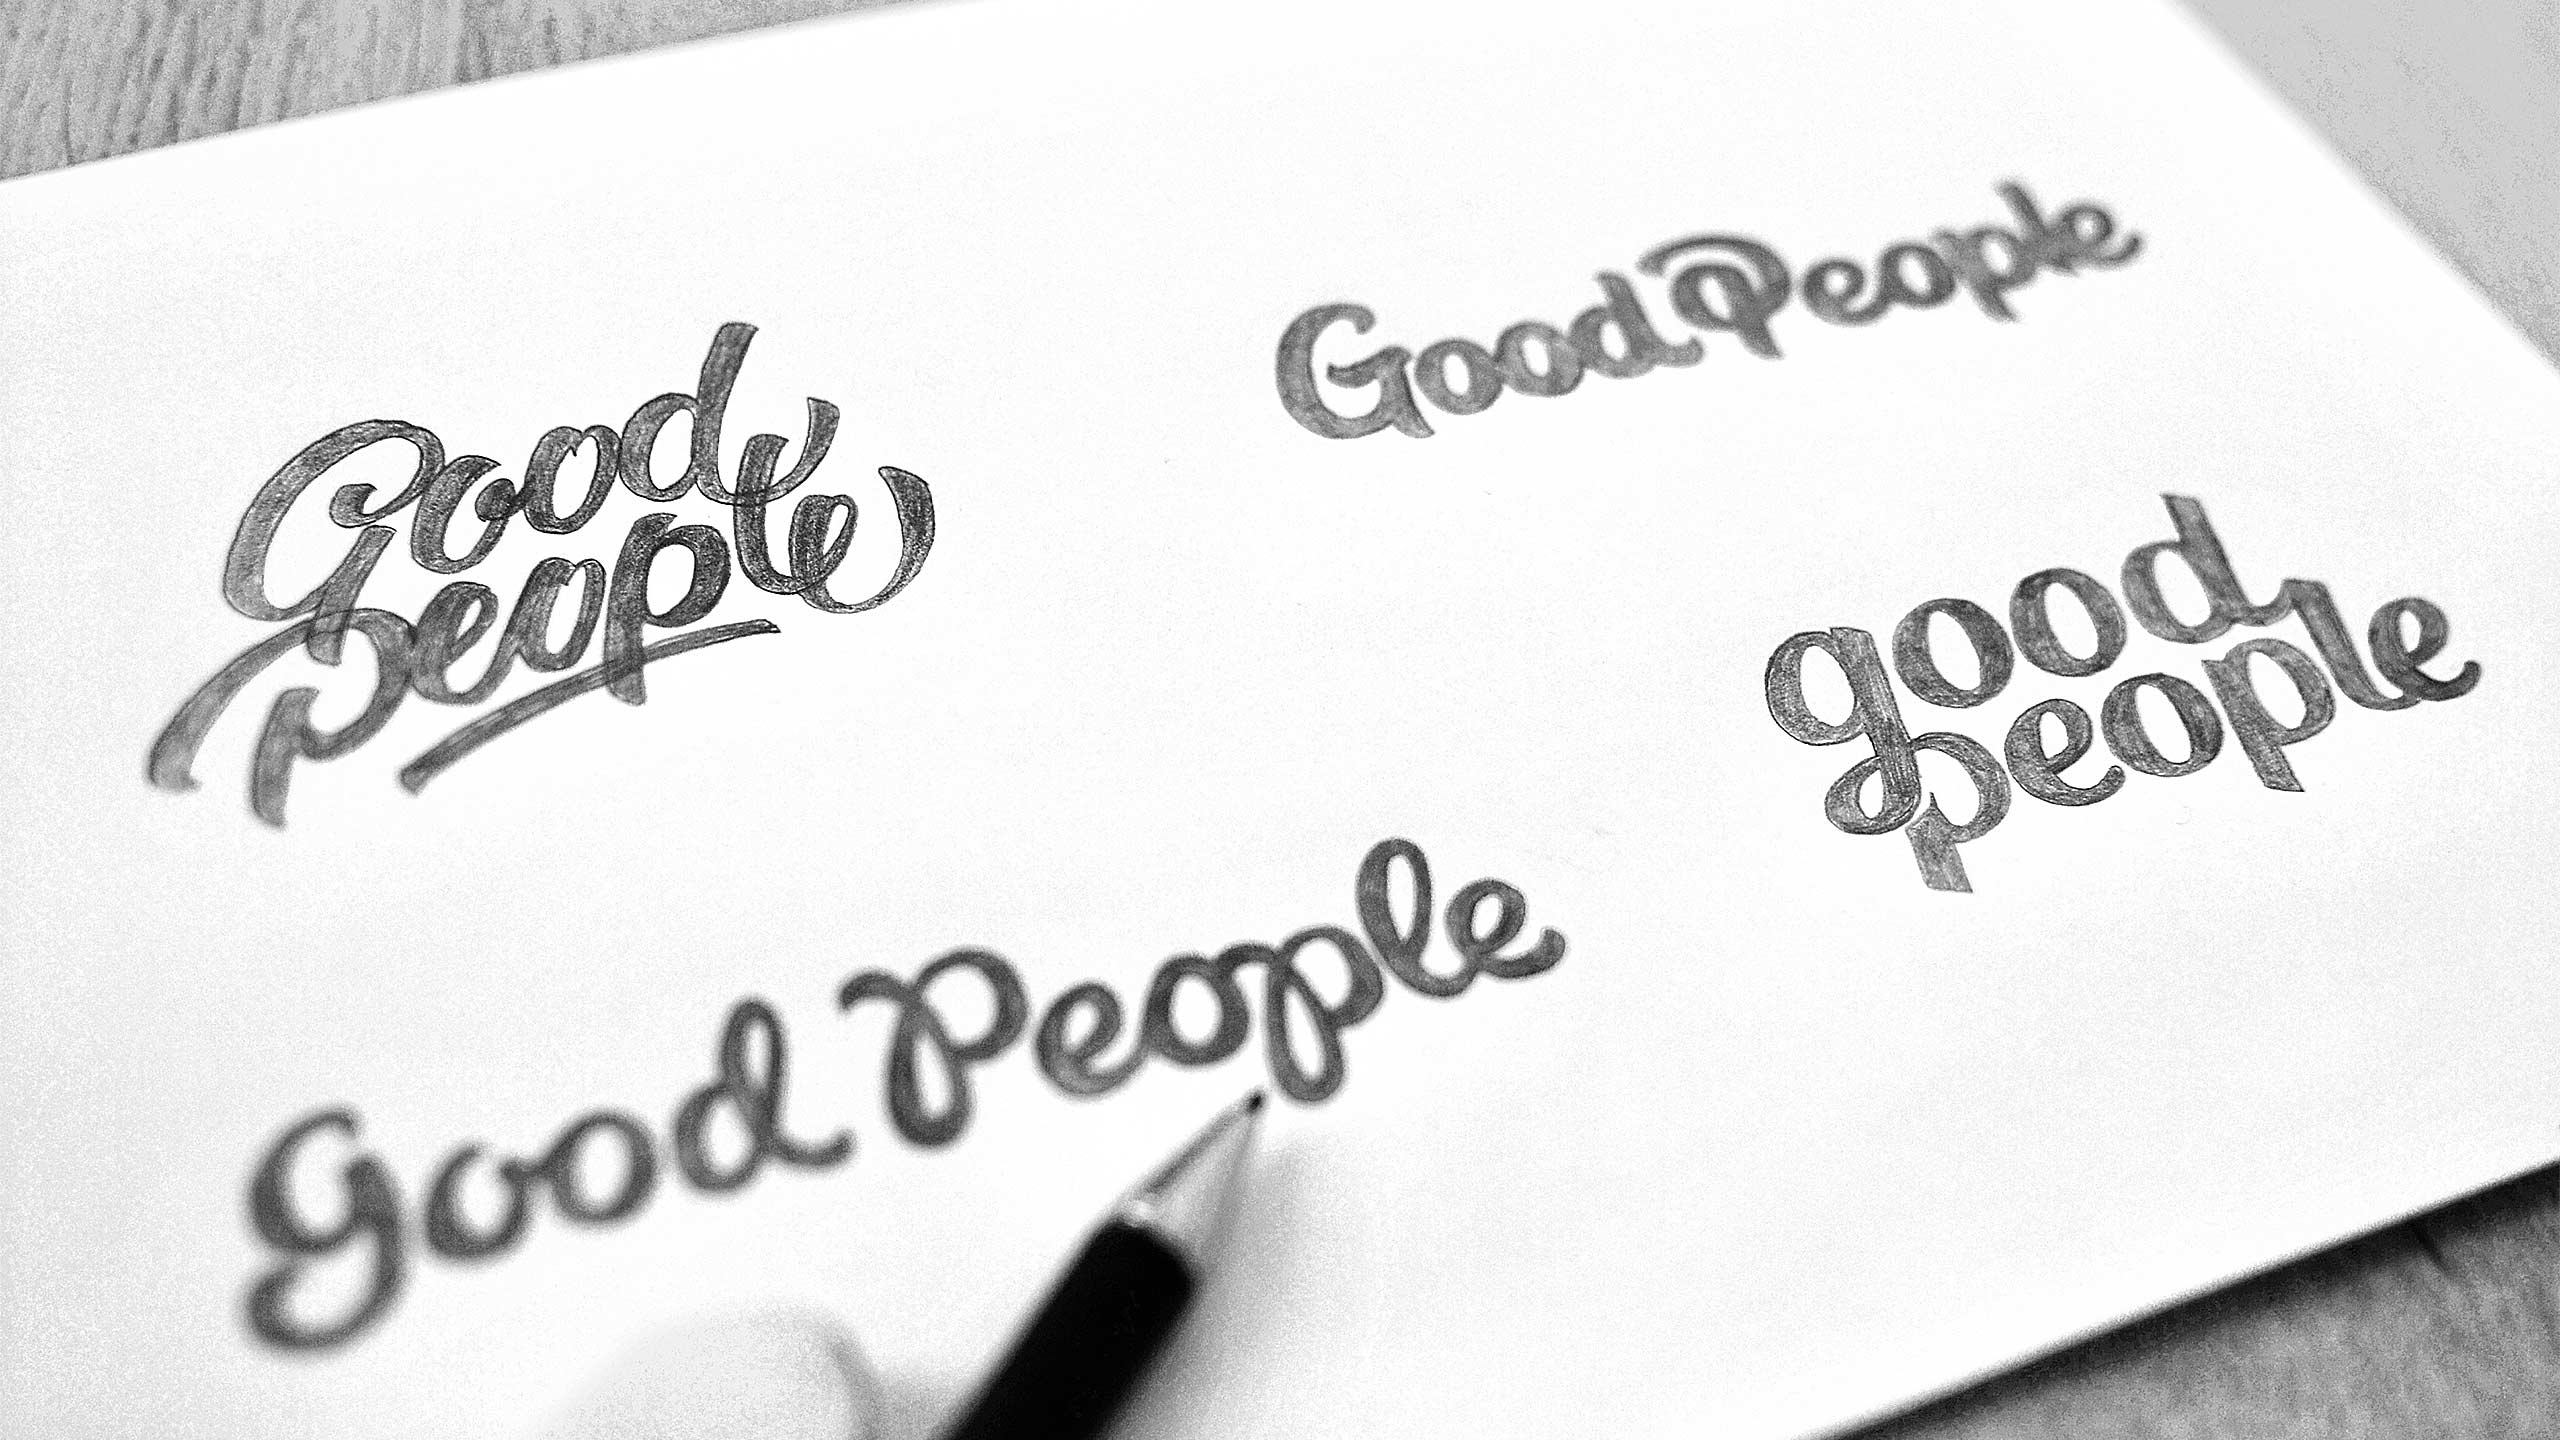 Good
people
Good People
good
people
Good People